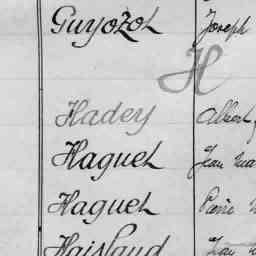 Guyozot Joseph
H
Hadey Albert
Haguet Jean
Haguet Pierre
Haisland Jean